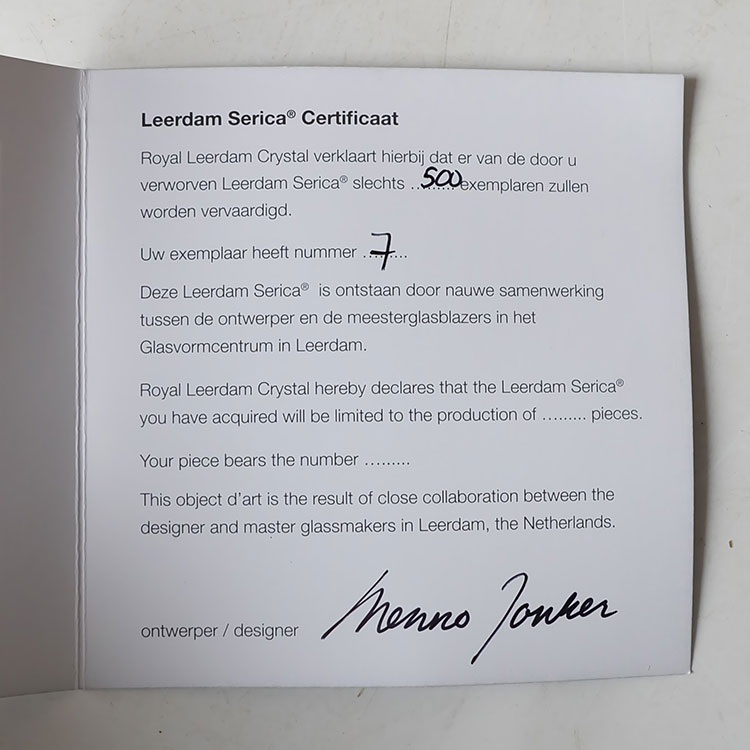 Leerdam Serica® Certificaat
Royal Leerdam Crystal verklaart hierbij dat er van de door u
verworven Leerdam Serica® slechts ...500...exemplaren zullen
worden vervaardigd.
Uw exemplaar heeft nummer ...7.....
Deze Leerdam Serica® is ontstaan door nauwe samenwerking
tussen de ontwerper en de meesterglasblazers in het
Glasvormcentrum in Leerdam.
Royal Leerdam Crystal hereby declares that the Leerdam Serica®
you have acquired will be limited to the production of ......... pieces.
Your piece bears the number .........
This object d'art is the result of close collaboration between the
designer and master glassmakers in Leerdam, the Netherlands.
ontwerper / designer Menno Jonker